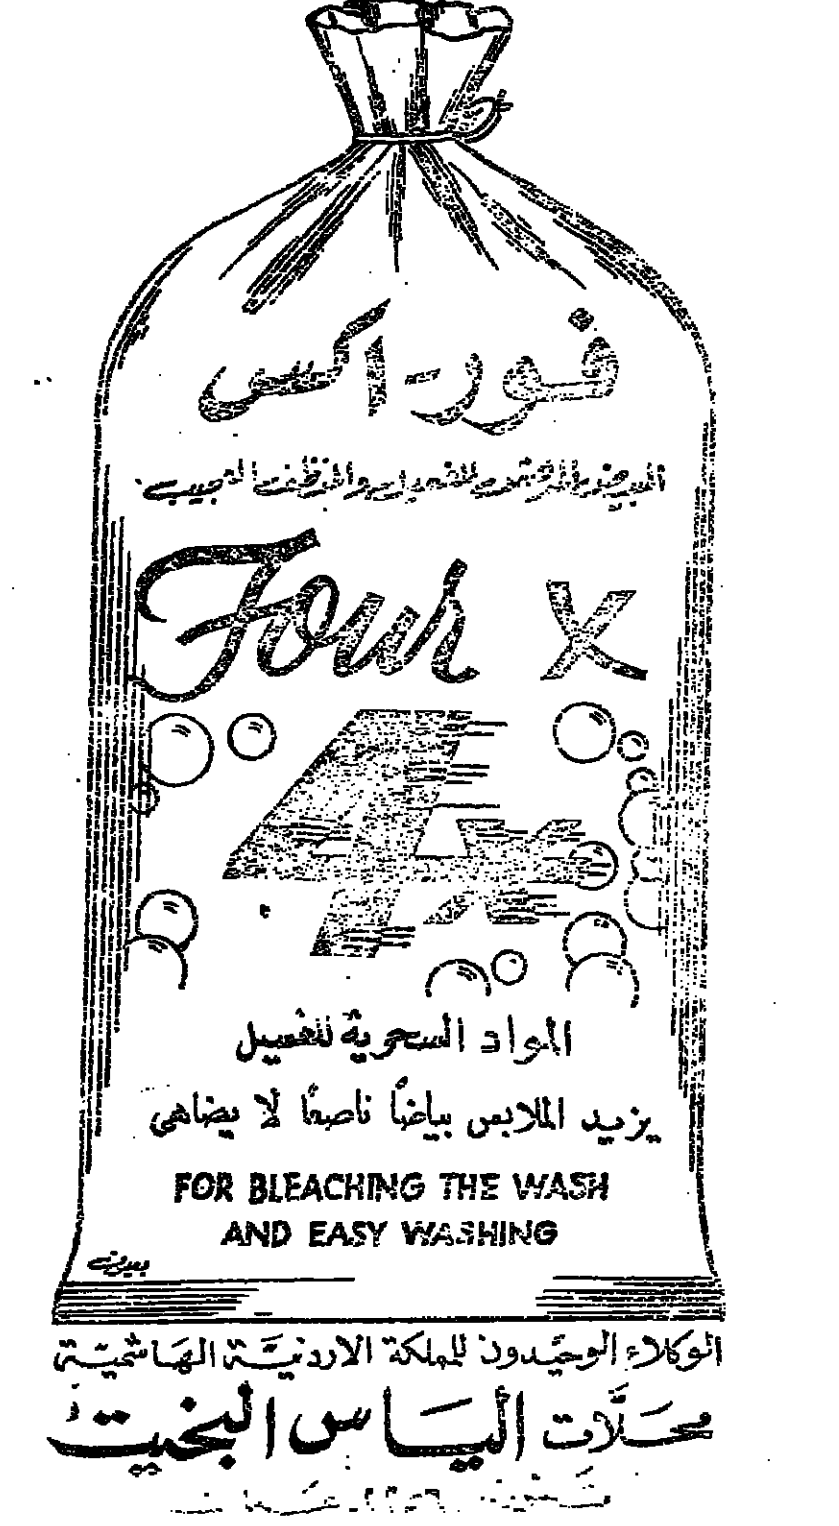 فور-اكس
Four X
4x
المواد السحرية للغسيل
يزيد الملابس بياضًا ناصعًا لا يضاهى
FOR BLEACHING THE WASH
AND EASY WASHING
بيروت
الوكلاء الوحيدون للمملكة الاردنية الهاشمية
محلات الياس البخيت